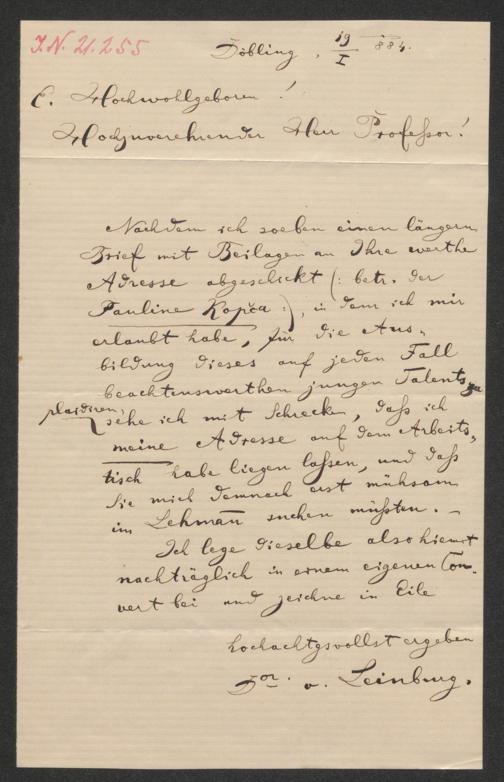 J.N. 21.255
Döbling, 19/I 884.
E. Hochwohlgeboren!
Hochzuverehrender Herr Professor!
Nachdem ich soeben einen längern
Brief mit Beilagen an Ihre werthe
Adresse abgeschickt (: betr. der
Pauline Kopča :), in dem ich mir
erlaubt habe, für die Aus-
bildung dieses auf jeden Fall
beachtenswerthen jungen Talents zu
plaidiren, sehe ich mit Schrecken, daß ich
meine Adresse auf dem Arbeits-
tisch habe liegen lassen, und daß
Sie mich demnach erst mühsam
im Lehman̄ suchen müßten. –
Ich lege dieselbe also hiemit
nachträglich in einem eigenen Con-
vert bei und zeichne in Eile
hochachtgsvollst ergeben
Dor. v. Leinburg.